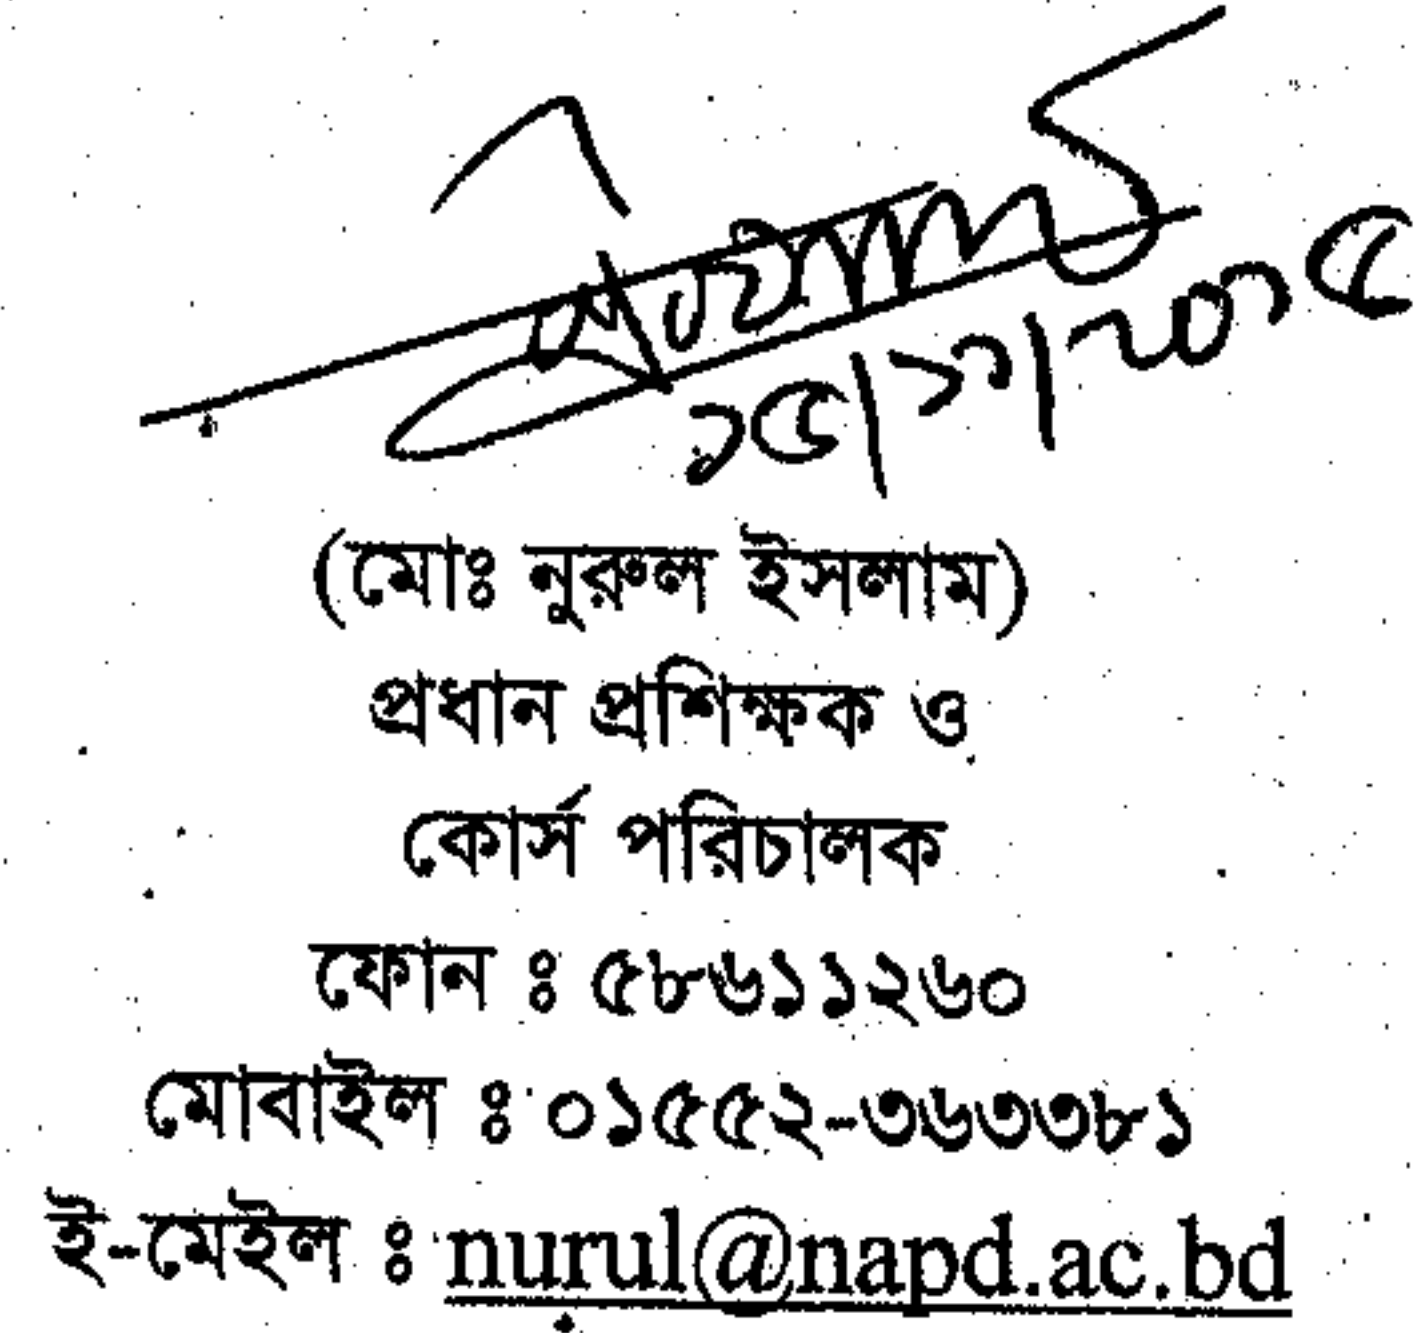 ১৫/১১/২০১৫
(মোঃ নুরুল ইসলাম)
প্রধান প্রশিক্ষক ও
কোর্স পরিচালক
ফোন ঃ ৫৮৬১১২৬০
মোবাইল ঃ ০১৫৫২-৩৬৩৩৮১
ই-মেইল ঃ nurul@napd.ac.bd